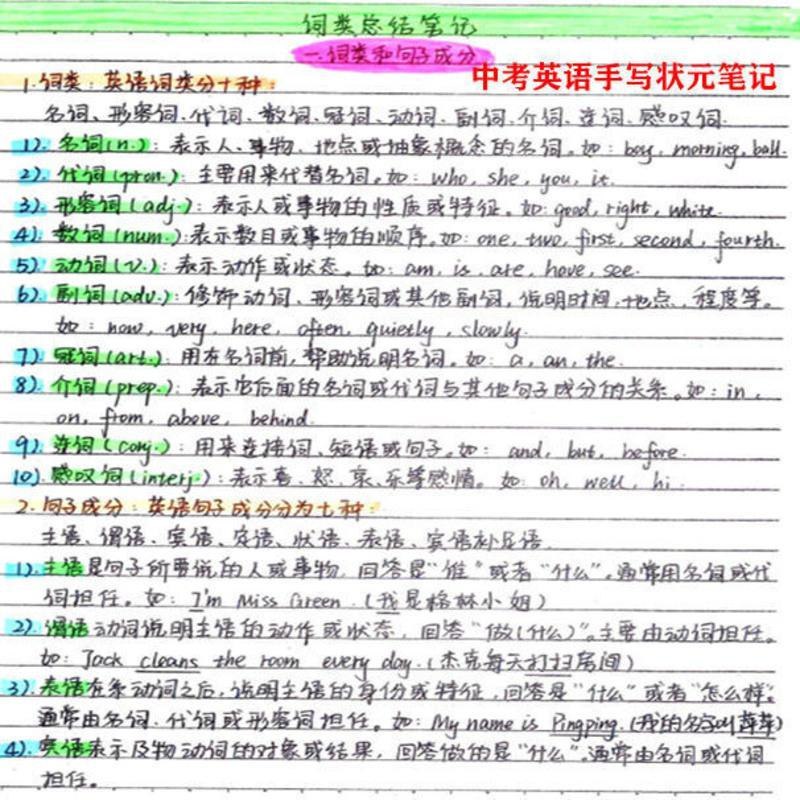 词类总结笔记
一.词类和句子成分
中考英语手写状元笔记
1.词类：英语词类分十种：
名词、形容词、代词、数词、冠词、动词、副词、介词、连词、感叹词.
1). 名词(n.)：表示人、事物、地点或抽象概念的名词。如：boy, morning, ball.
2). 代词(pron.)：主要用来代替名词。如：who, she, you, it.
3). 形容词(adj.)：表示人或事物的性质或特征。如：good, right, white.
4). 数词(num.):表示数目或事物的顺序。如：one, two, first, second, fourth.
5). 动词(v.)：表示动作或状态。如：am, is, are, have, see.
6). 副词(adv.)：修饰动词、形容词或其他副词，说明时间，地点，程度等。
如：now, very, here, often, quietly, slowly.
7). 冠词(art.)：用在名词前，帮助说明名词。如：a, an, the.
8). 介词(prep.)：表示它后面的名词或代词与其他句子成分的关系。如：in,
on, from, above, behind.
9). 连词(conj.)：用来连接词、短语或句子。如：and, but, before.
10). 感叹词(interj.)：表示喜、怒、哀、乐等感情。如：oh, well, hi.
2.句子成分：英语句子成分分为七种：
主语、谓语、宾语、定语、状语、表语、宾语补足语.
1). 主语是句子所要说的人或事物，回答是"谁"或者"什么"。通常用名词或代
词担任。如：I'm Miss Green.（我是格林小姐）
2). 谓语动词说明主语的动作或状态，回答"做(什么)"。主要由动词担任。
如：Jack cleans the room every day.（杰克每天打扫房间）
3). 表语在系动词之后，说明主语的身份或特征，回答是"什么"或者"怎么样".
通常由名词、代词或形容词担任。如：My name is Pingping.（我的名字叫萍萍）
4). 宾语表示及物动词的对象或结果，回答做的是"什么"。通常由名词或代词
担任。